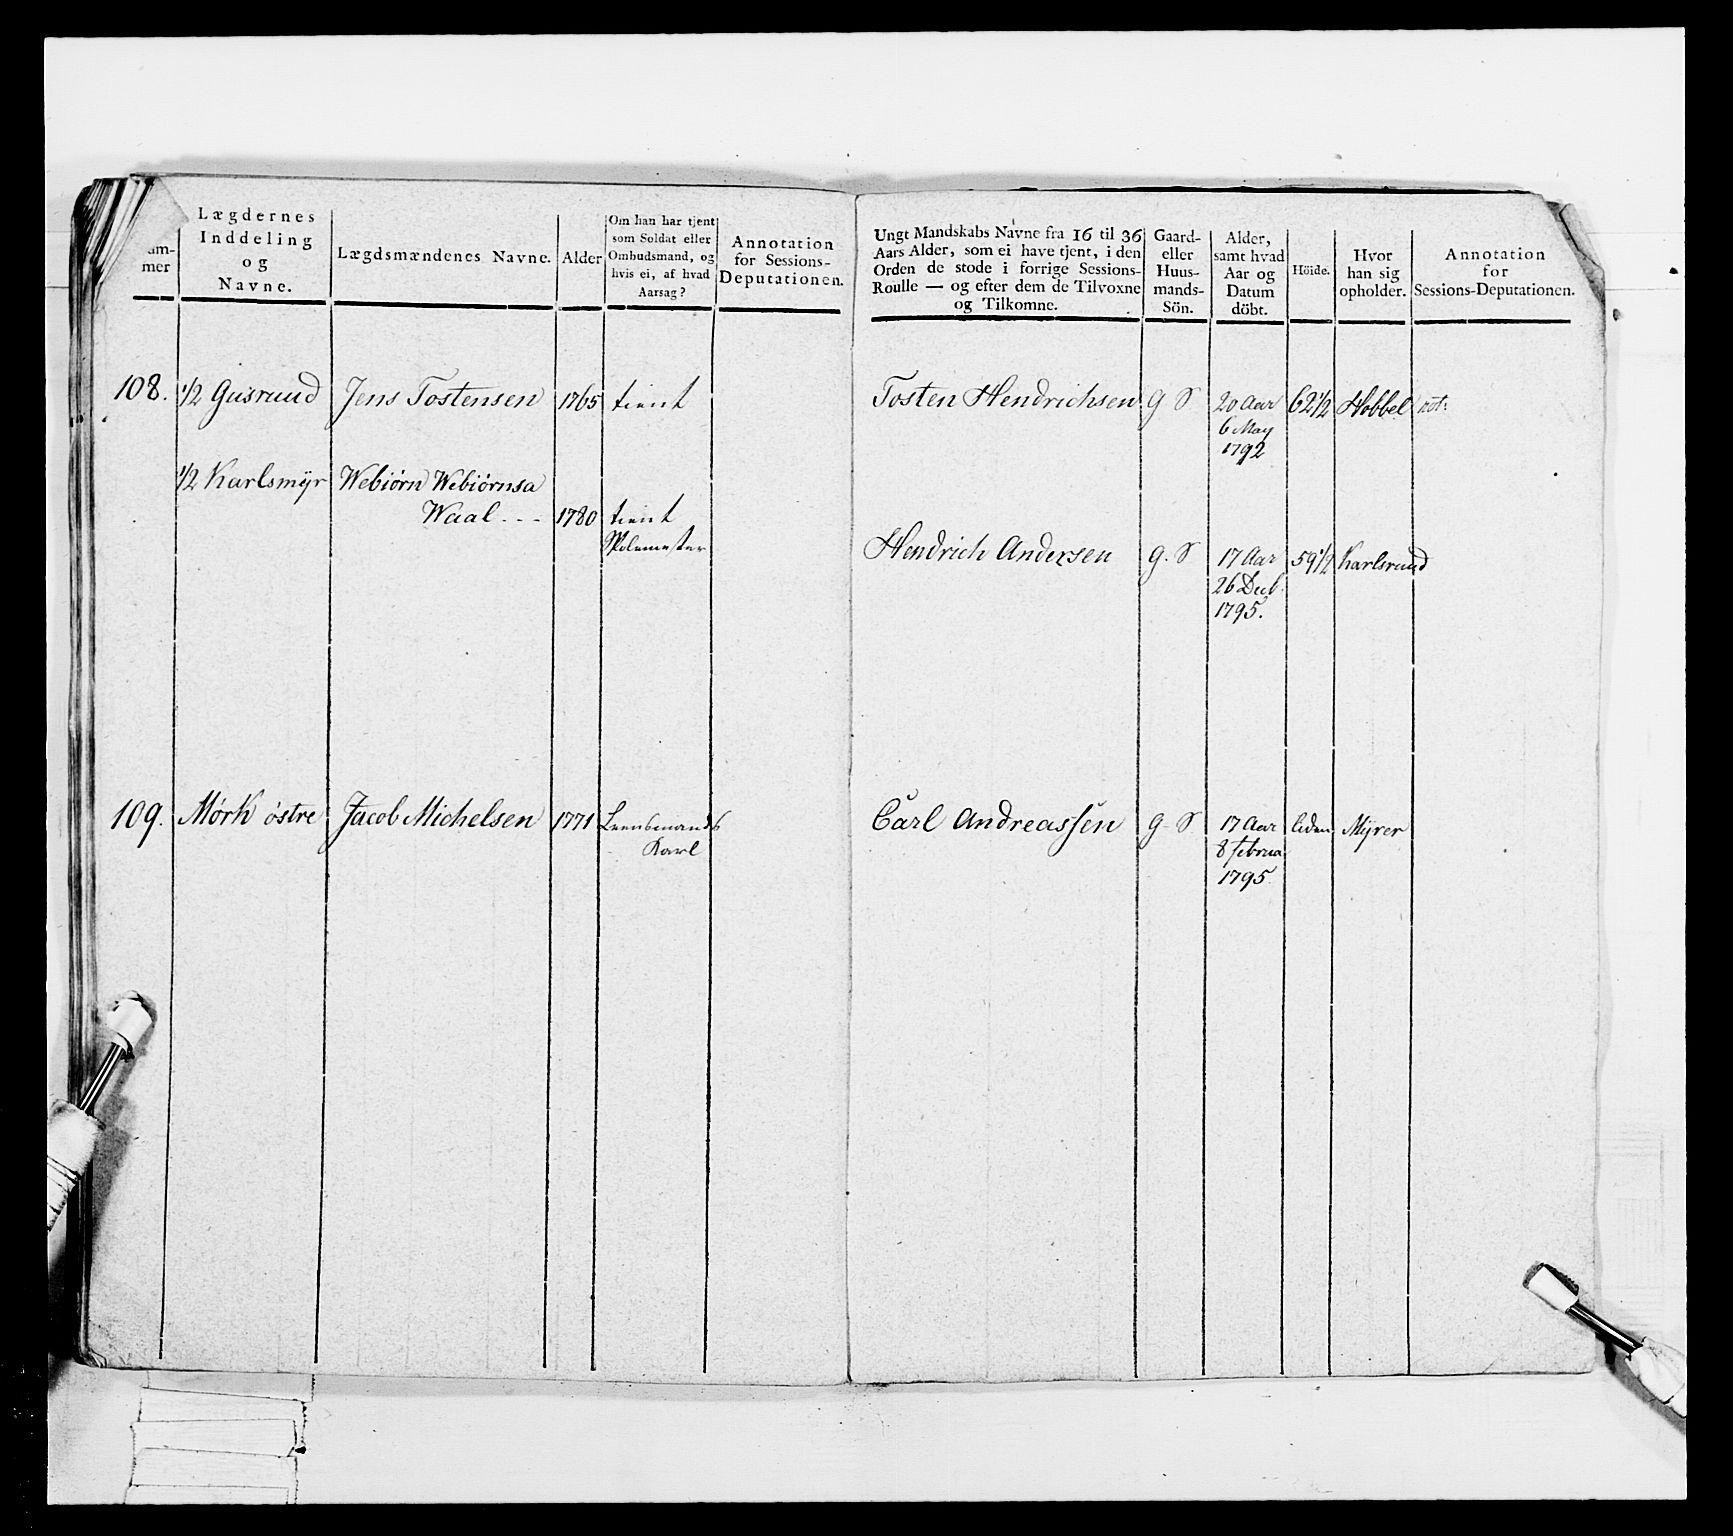 mer
Lægdernes
Inddeling
og
Navne.
Lægdsmændenes Navne.
Alder
Om han har tjent
som Soldat eller
Ombudsmand, og
hvis ei, af hvad
Aarsag?
Annotation
for Sessions-
Deputationen.
108. 1/2 Gusruud Jens Tostensen 1765 tient
1/2 Karlsmÿr Webiørn Webiørnsa
Waal - - - 1780 tient
Skolemester
109. Mørk østre Jacob Michelsen 1771 Leensmands
Karl
Ungt Mandskabs Navne fra 16 til 36
Aars Alder, som ei have tjent, i den
Orden de stode i forrige Sessions-
Roulle — og efter dem de Tilvoxne
og Tilkomne.
Gaard-
eller
Huus-
mands-
Sön.
Alder,
samt hvad
Aar og
Datum
döbt.
Höide.
Hvor
han sig
opholder.
Annotation
for
Sessions-Deputationen.
Tosten Hendrichsen g S 20 Aar 62 1/2 Hobbel
6 May
1792
Hendrich Andersen g. S 17 Aar 59 1/2 Karlsruud
26 Decb
1795.
Carl Andreassen g - S 17 Aar liden Mÿrer
8 februa
1795.